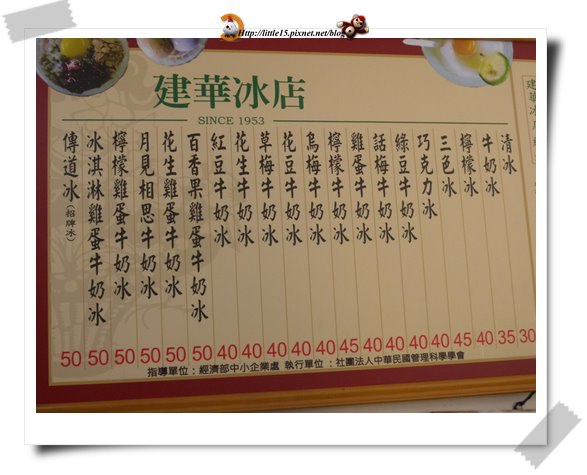 Http://little15.pixnet.net/blog
建華冰店
SINCE 1953
清冰
牛奶冰
檸檬冰
三色冰
巧克力冰
綠豆牛奶冰
話梅牛奶冰
雞蛋牛奶冰
檸檬牛奶冰
烏梅牛奶冰
花豆牛奶冰
草梅牛奶冰
花生牛奶冰
紅豆牛奶冰
百香果雞蛋牛奶冰
花生雞蛋牛奶冰
月見相思牛奶冰
檸檬雞蛋牛奶冰
冰淇淋雞蛋牛奶冰
傳道冰(招牌冰)
50 50 50 50 50 50 40 40 40 40 40 45 40 40 40 40 45 40 35 30
指導單位：經濟部中小企業處 執行單位：社團法人中華民國管理科學學會